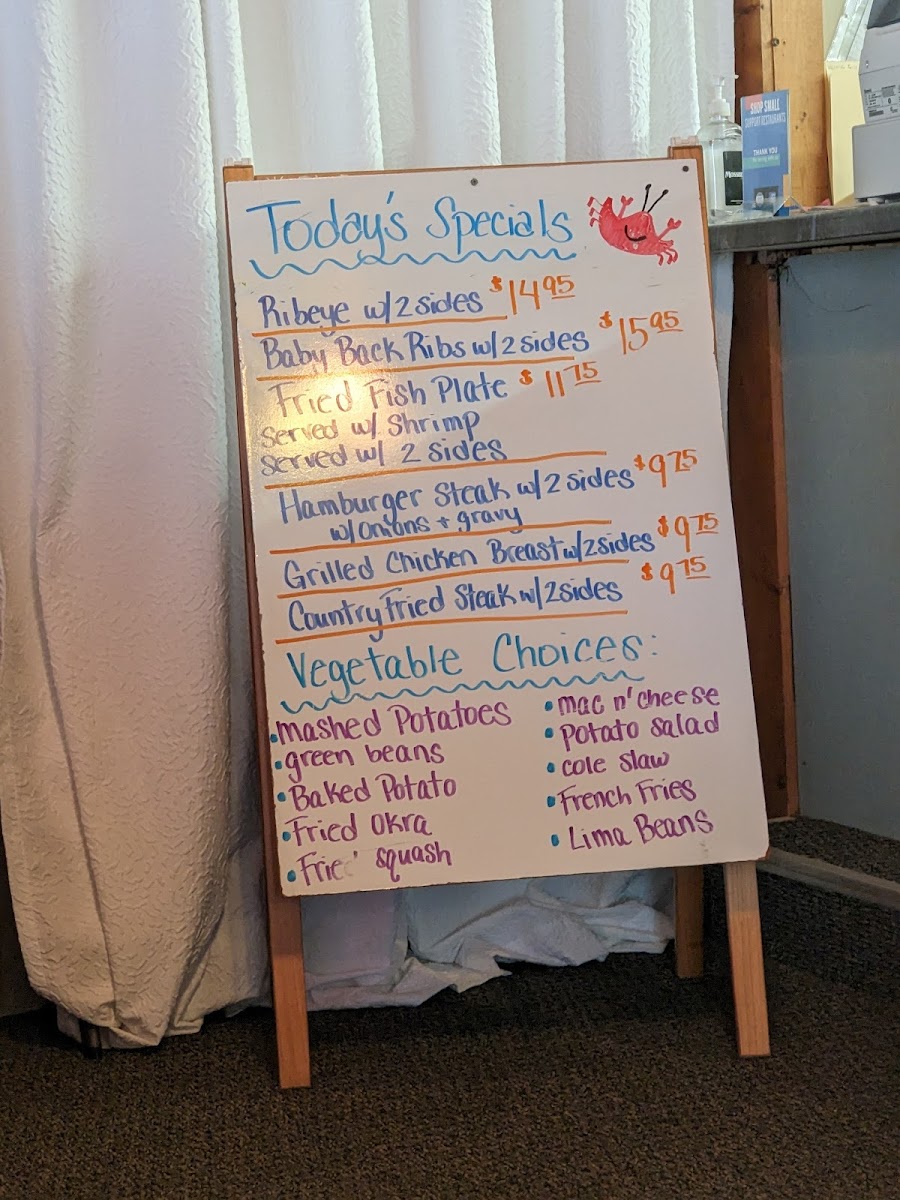 Today's Specials
Ribeye w/2 sides $14.95
Baby Back Ribs w/2 sides $15.95
Fried Fish Plate $11.75
served w/ Shrimp
served w/ 2 sides
Hamburger Steak w/2 sides $9.75
w/onions + gravy
Grilled Chicken Breast w/2 sides $9.75
Country Fried Steak w/2 sides $9.75
Vegetable Choices:
• mashed Potatoes
• green beans
• Baked Potato
• Fried Okra
• Fried squash
• mac n' cheese
• potato salad
• cole slaw
• French Fries
• Lima Beans
SHOP SMALL
SUPPORT RESTAURANTS
THANK YOU